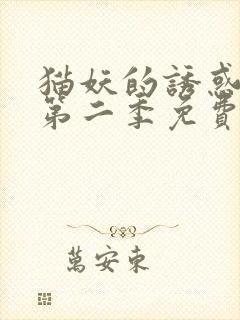 猫妖的誘惑
第二季免費
萬安東